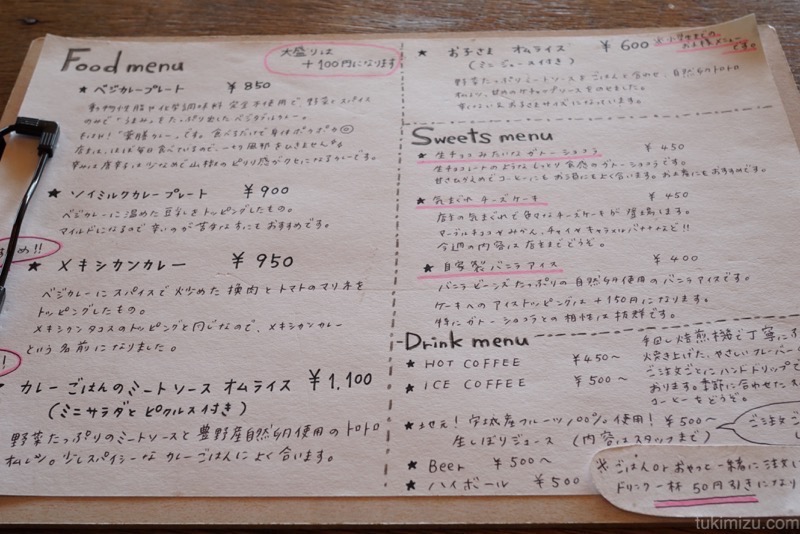 Food menu
大盛りは
+100円になります
★ ベジカレープレート ¥850
動物性脂や化学調味料完全不使用で、野菜とスパイス
のみで"うまみ"をたっぷり出したベジタブルカレー。
それは!"薬膳カレー"です。食べるだけで身体ポカポカ
店主は、ほぼ毎日食べているので、一切風邪をひきません
★ ソイミルクカレープレート ¥900
ベジカレーに温めた豆乳をトッピングしたもの。
マイルドになるので辛いのが苦手な方にもおすすめです。
!!
★ メキシカンカレー ¥950
ベジカレーにスパイスで炒めた挽肉とトマトのマリネを
トッピングしたもの。
メキシカンタコスのトッピングと同じなので、メキシカンカレー
という名前になりました。
!
★ カレーごはんのミートソース オムライス ¥1,100
(ミニサラダとピクルス付き)
野菜たっぷりのミートソースと豊野産自然卵使用のトロトロ
オムレツ。少しスパイシーなカレーごはんによく合います。
★ お子さま オムライス ¥600
(ミニジュース付き)
野菜たっぷりミートソースをごはんと合わせ、自然卵のトロトロ
Sweets menu
★ 生チョコみたいなガトーショコラ ¥450
生チョコレートのようなしっとり食感のガトーショコラです。
甘さひかえめでコーヒーにもお酒にもよく合います。お土産にもおすすめです。
★ 気まぐれチーズケーキ ¥450
店主の気まぐれで色々なチーズケーキが登場します。
マーブルチョコやみかん、チャイやキャラメルバナナなど!!
今週の内容は店主までどうぞ。
★ 自家製バニラアイス ¥400
バニラビーンズたっぷりの自然卵使用のバニラアイスです。
ケーキへのアイストッピングは+150円になります。
特にガトーショコラとの相性は抜群です。
Drink menu
★ HOT COFFEE ¥450~
★ ICE COFFEE ¥500~
手回し焙煎機で丁寧に
焼き上げた、やさしいフレーバー
ご注文ごとにハンドドリップで
おります。季節に合わせた
コーヒーをどうぞ。
★ 地元!安城産フルーツ100%使用! ¥500~
生しぼりジュース (内容はスタッフまで)
ご注文
★ Beer ¥500~
★ ハイボール ¥500
※ ごはん or おやつと一緒に注文
ドリンク一杯 50円引きになり
tukimizu.com